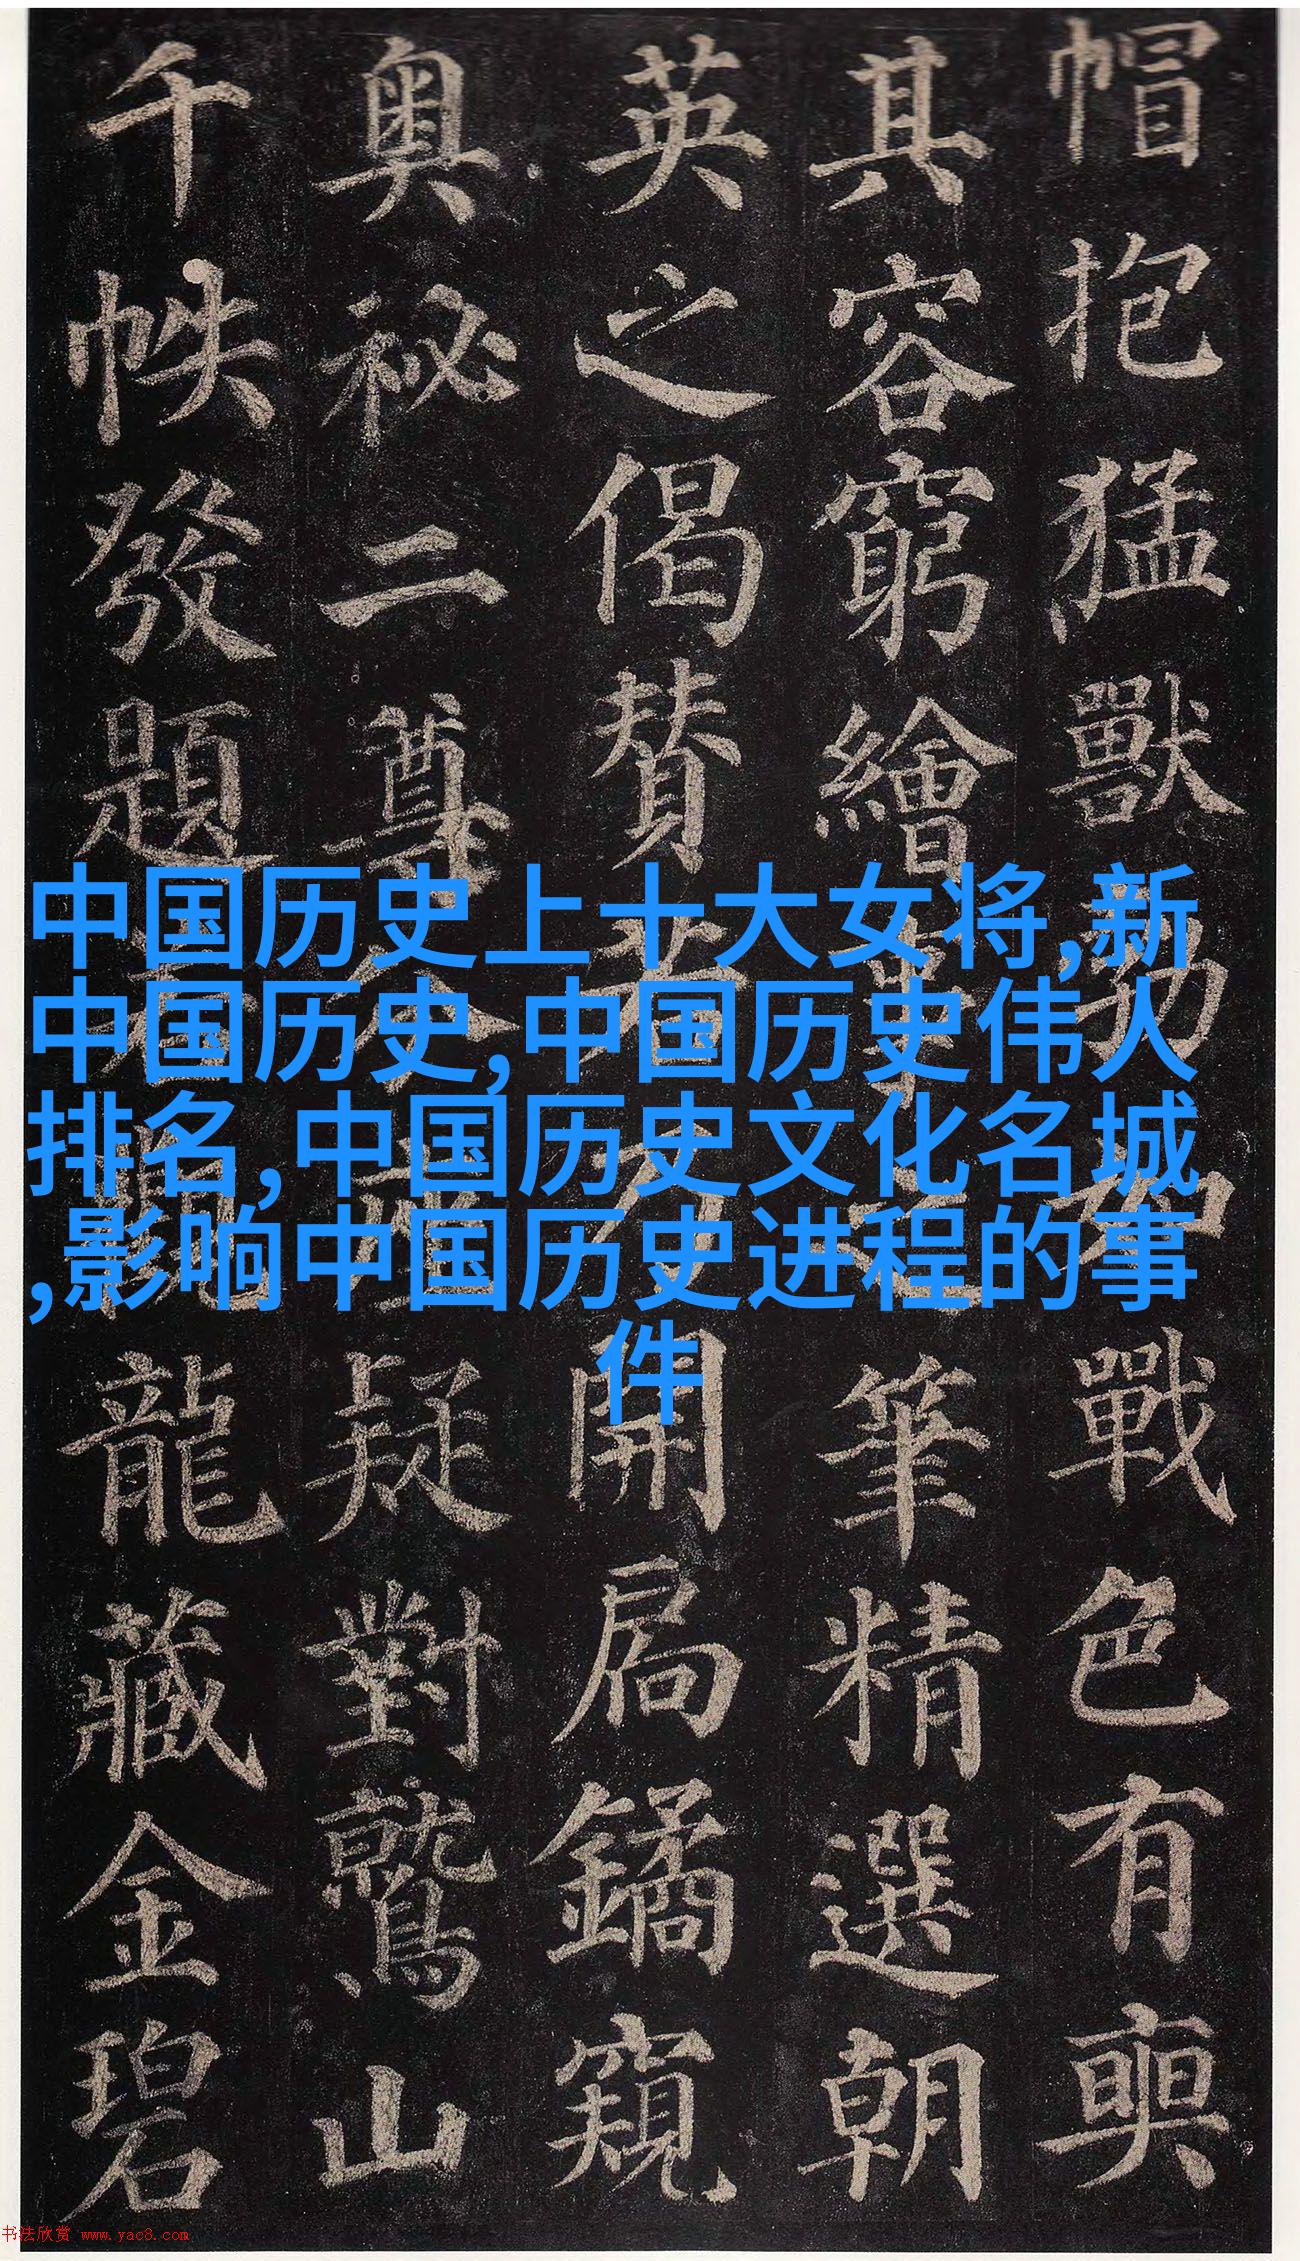 帽抱猛獸勃如戰色有奭
其容窮繪事之筆精選朝
英之偈贊若乃開扃鐍窺
奧秘二尊分座疑對鷲山
千帙發題若觀龍藏金碧
中国历史上十大女将,新
中国历史,中国历史伟人
排名,中国历史文化名城
,影响中国历史进程的事
件
书法欣赏 www.yac8.com